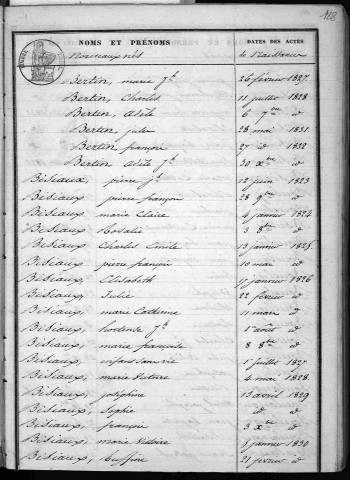 122
NOMS ET PRÉNOMS DATES DES ACTES
Nouveaux nés de Naissance
Bertin, marie jh 26 février 1827
Bertin, Charles 11 juillet 1828
Bertin, Adèle 6 7bre id
Bertin, jules 28 mai 1831
Bertin, françois 27 id 1832
Bertin, Adèle jh 30 Xbre id
Bésiaux, pierre jh 12 juin 1823
Bésiaux, pierre françois 28 9bre id
Bésiaux, marie Claire 4 janvier 1824
Bésiaux, Rosalie 3 8bre id
Bésiaux, Charles Emile 13 janvier 1825
Bésiaux, pierre françois 10 mai id
Bésiaux, Elisabeth janvier 1826
Bésiaux, Julie 22 février id
Bésiaux, marie Catherine 11 mars id
Bésiaux, hortense jh 1er août id
Bésiaux, marie françoise 8 8bre id
Bésiaux, enfant sans vie 1er juillet 1827
Bésiaux, marie 4 mai 1828
Bésiaux, joséphine 13 avril 1829
Bésiaux, Sophie id id
Bésiaux, françois 3 Xbre id
Bésiaux, marie Victoire janvier 1830
Bésiaux, Ruffine 21 février id